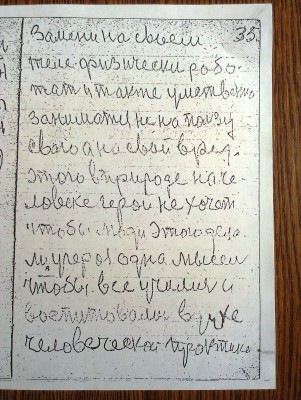 35.
Замени на своем
теле физически робо-
тат и также умственно
занимат и не на ползу
свого а на свой вред.
этого в природе на че-
ловеке герои не хочат
чтобы люди этого дела
одна мысел
чтобы все училис и
воспитовалис в духе
человеческой практике